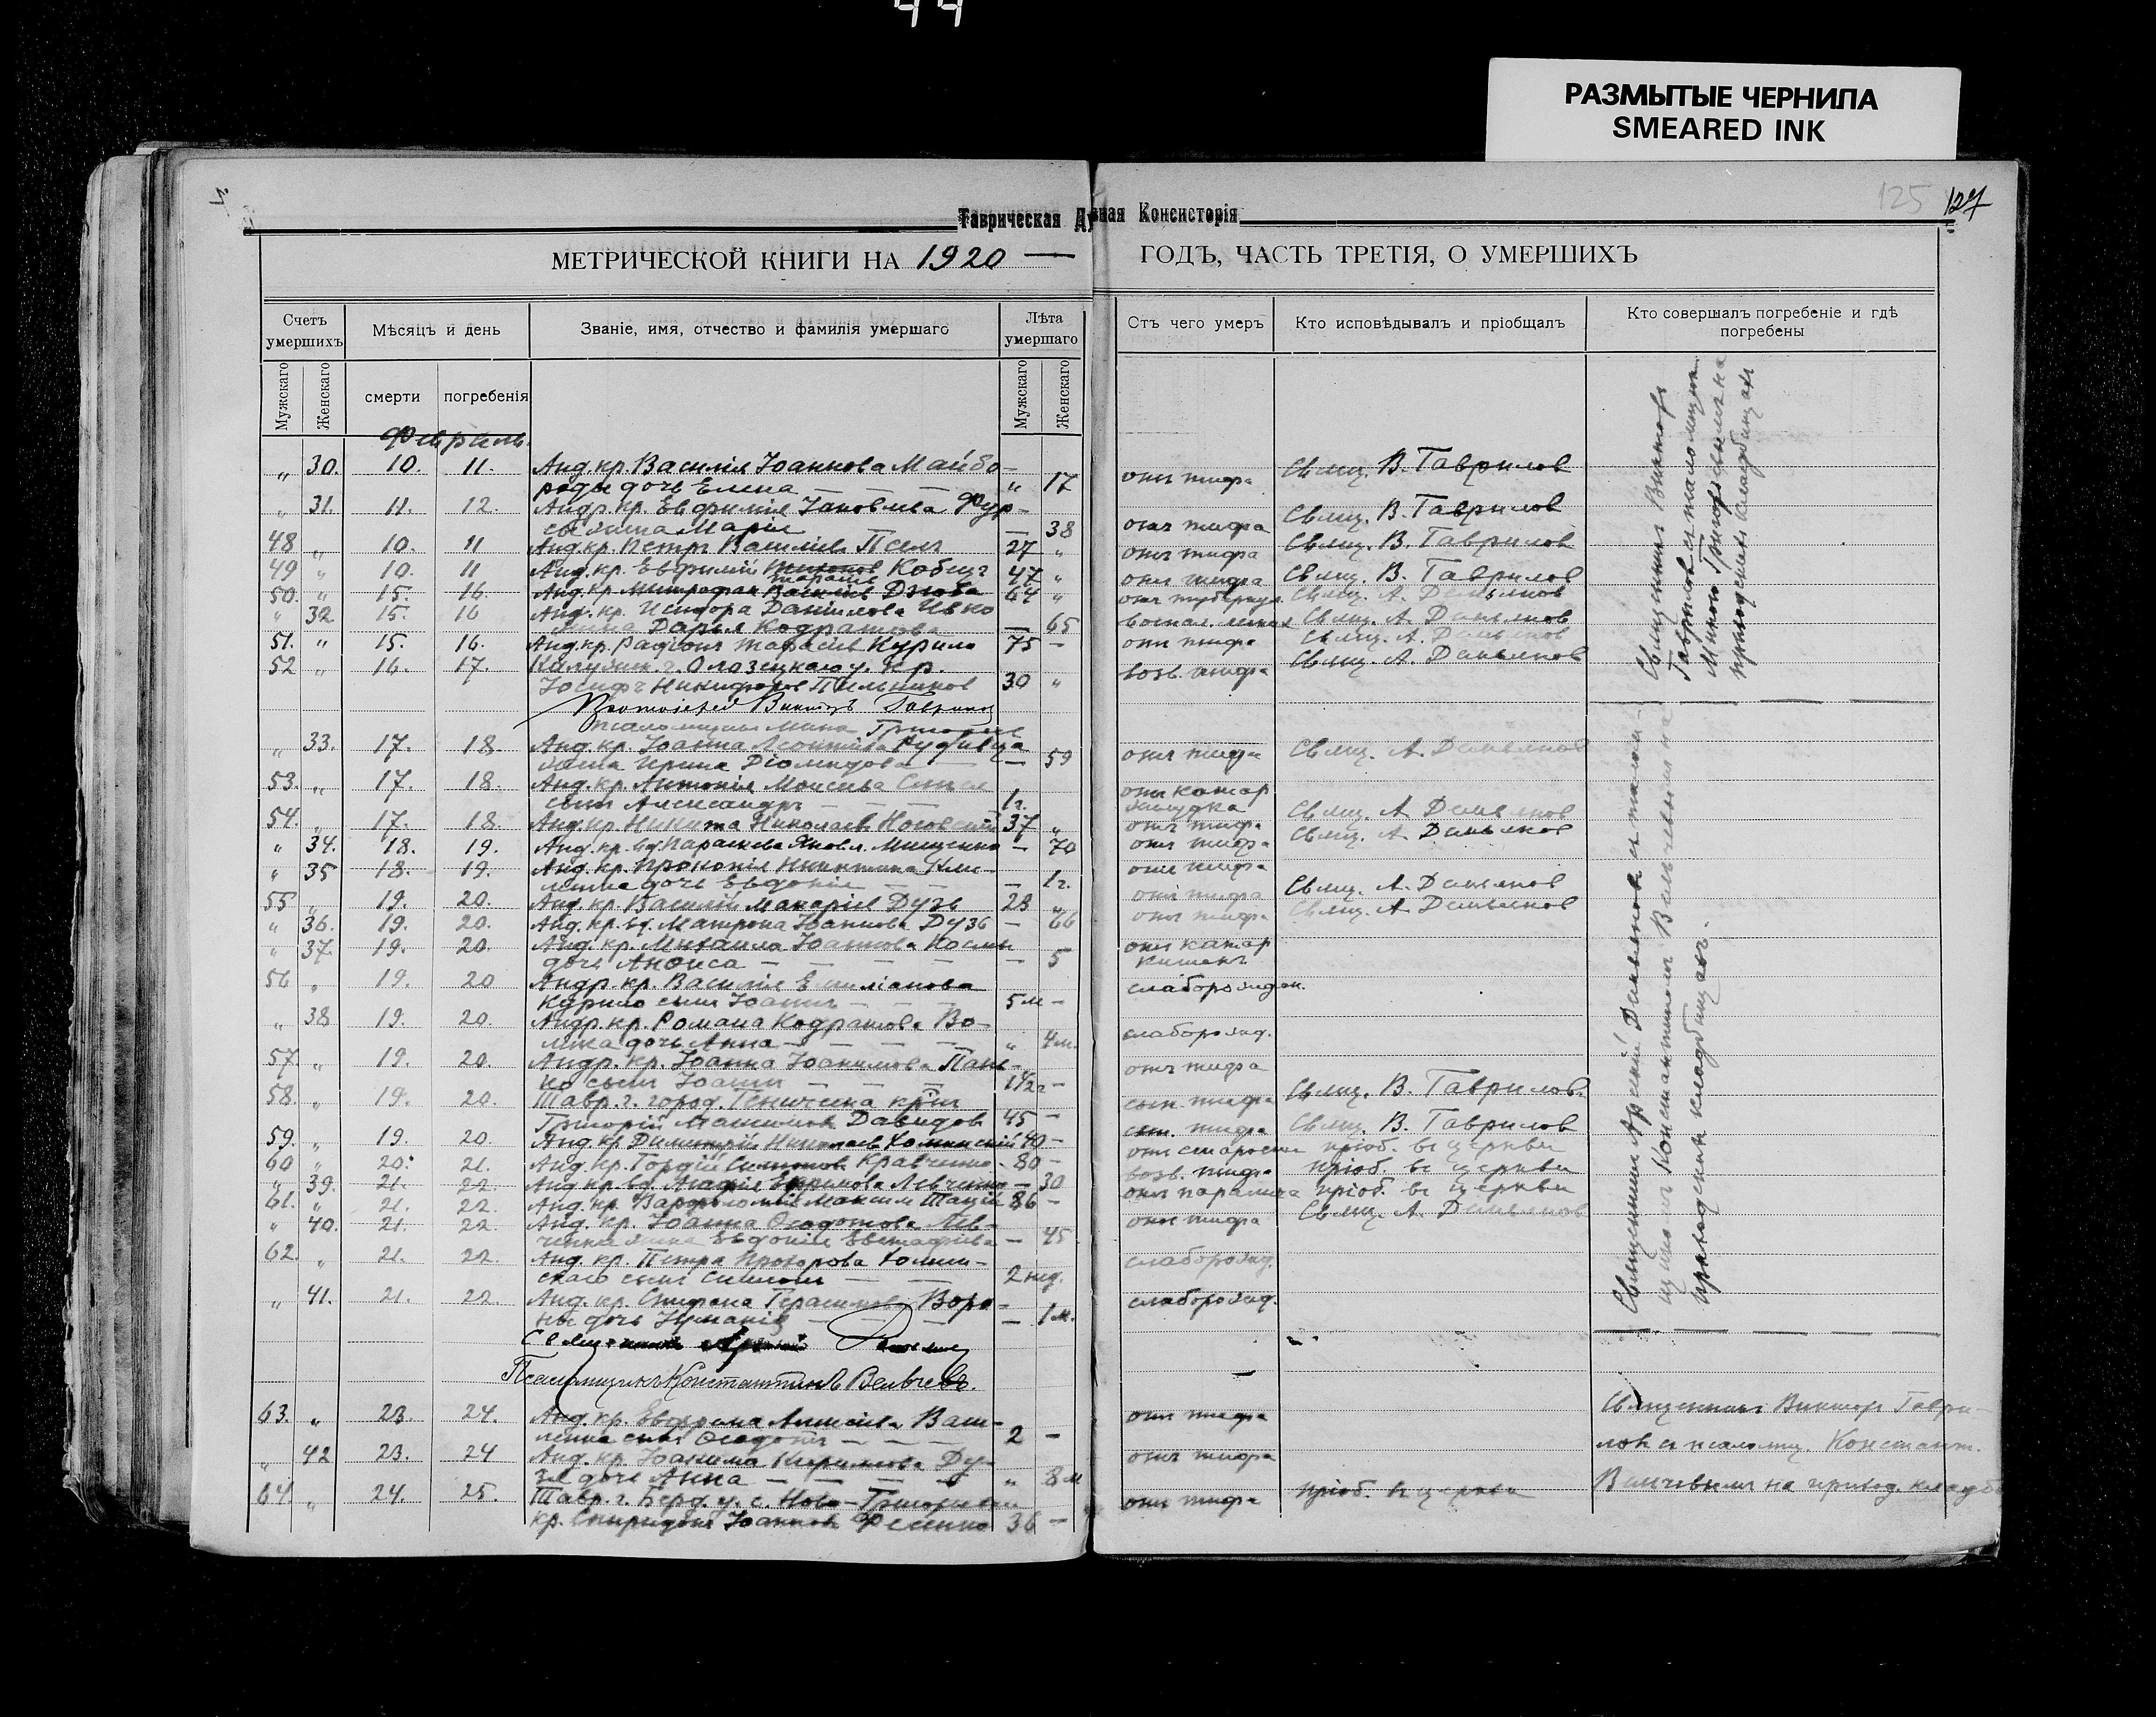 44
РАЗМЫТЫЕ ЧЕРНИЛА
SMEARED INK
125 127
Таврическая Духовная Консисторія
МЕТРИЧЕСКОЙ КНИГИ НА 1920 ГОДЪ, ЧАСТЬ ТРЕТІЯ, О УМЕРШИХЪ
Счетъ умершихъ
Мѣсяцъ и день
Званіе, имя, отчество и фамилія умершаго
Лѣта умершаго
Отъ чего умеръ
Кто исповѣдывалъ и пріобщалъ
Кто совершалъ погребеніе и гдѣ погребены
Мужскаго
Женскаго
смерти
погребенія
Мужскаго
Женскаго
Февраль.
„ 30. 10. 11. Анд. кр. Василія Іоаннова Майбо-
роды дочь Елена — „ 17 отъ тифа Свящ. В. Гаврилов
„ 31. 11. 12. Андр. кр. Евфимія Іаковлева Фур-
сы жена Марія — 38 отъ тифа Свящ. В. Гаврилов
48 „ 10. 11 Анд. кр. Петръ Василіев 27 „ отъ тифа Свящ. В. Гаврилов
49 „ 10. 11 Анд. кр. Евфимій Кобец 47 „ отъ тифа Свящ. В. Гаврилов
50. „ 15. 16. Анд. кр. Митрофан Тарасіев Дзюба 64 „ отъ туберкул. Свящ. А. Демьянов
„ 32. 15. 16 Анд. кр. Исидора Даніилова Ивко
жена Дарья Кодратова — 65 воспал. легких Свящ. А. Демьянов
51. „ 15. 16. Анд. кр. Родіонъ Тарасіев Курило 75 — отъ тифа Свящ. А. Демьянов
52 „ 16. 17. Калужск. г. у. кр.
Іосифъ Никифоров Пильщиков 30 „ возв. тифа Свящ. А. Демьянов
Протоіерей Викторъ Гаврилов
Псаломщик Мина Григорьев
„ 33. 17. 18. Анд. кр. Іоанна Леонтіева
жена Ирина Діомидова — 59 отъ тифа Свящ. А. Демьянов
53. „ 17. 18. Анд. кр. Антонія Моисеева
сынъ Александръ — 1 г. отъ катар
желудка
54. „ 17. 18. Анд. кр. Никита Николаев Носовскій 37 „ отъ тифа Свящ. А. Демьянов
„ 34. 18. 19. Анд. кр. вд. Параскева Яковл. Мищенко — 70 отъ тифа Свящ. А. Демьянов
„ 35 18. 19. Анд. кр. Прокопія Никитина
дочь Евдокія — 1 г. отъ тифа
55 „ 19. 20. Анд. кр. Василій Макаріев Дузь 28 „ отъ тифа Свящ. А. Демьянов
„ 36. 19. 20. Анд. кр. вд. Матрона Іоаннова Дузь — 66 отъ тифа Свящ. А. Демьянов
„ 37. 19. 20. Анд. кр. Михаила Іоаннова
дочь Анфиса — 5 отъ катар
кишекъ
56 „ 19. 20 Андр. кр. Василія Емиліанова
Курило сынъ Іоаннъ — 5 м — слаборожден.
„ 38 19. 20. Андр. кр. Романа Кодратова Во-
дочь Анна — „ 4 м. слаборожд.
57. „ 19. 20. Андр. кр. Іоанна Іоакимова Пань-
ко сынъ Іоаннъ — 1 1/2 г — отъ тифа
58. „ 19. 20. Тавр. г. город. Геническа кр-нъ
Григорій Давидов 45 — сып. тифа Свящ. В. Гаврилов.
59. „ 19. 20. Анд. кр. Димитрій Николаев Хоминскій 40 — сып. тифа Свящ. В. Гаврилов
60 „ 20. 21. Анд. кр. Гордій Симонов Кравченко — 80 — отъ старости пріоб. въ церкви
„ 39. 21. 22 Анд. кр. вд. Агафія Левченко — 30 возв. тифа пріоб. въ церкви
61. „ 21. 22. Анд. кр. Варфоломій Максим. Тацій 86 — отъ паралича пріоб. въ церкви
„ 40. 21. 22 Анд. кр. Іоанна Феодотова Лев-
ченка жена Евдокія Евстафіева — 45 отъ тифа Свящ. А. Демьянов
62. „ 21. 22. Анд. кр. Петра Прохорова Хомин-
скаго сынъ Симеонъ — 2 нед. слаборожд.
„ 41. 21. 22. Анд. кр. Стефана Герасимова Воро-
ны дочь — 1 м. слаборожд.
Священникъ Арсеній Демьянов
Псаломщикъ Константинъ Вельчевъ.
63. „ 23. 24. Анд. кр. Евграфа Алексіева Васи-
ленка сынъ Феодотъ — 2 — отъ тифа
„ 42 23. 24 Анд. кр. Іоакима Ду-
зя дочь Анна — „ 8 м отъ тифа
64. „ 24. 25. Тавр. г. Берд. у. с. Ново-Григорьевки
кр. Спиридонъ Іоаннов Фесенко 36 — отъ тифа пріоб. въ церкви
Священникъ Викторъ
Гаврилов съ псаломщиком
Миною Григорьевым на
приходскомъ кладбищѣ
Священникъ Арсеній Демьянов съ псалом-
щиком Константином Вельчевым на
приходском кладбищѣ.
Священникъ Викторъ Гаври-
лов съ псаломщ. Констант.
Вельчевым на приход. кладб